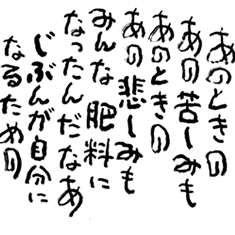 あのときの
あの苦しみも
あのときの
あの悲しみも
みんな肥料に
なったんだなあ
じぶんが自分に
なるための